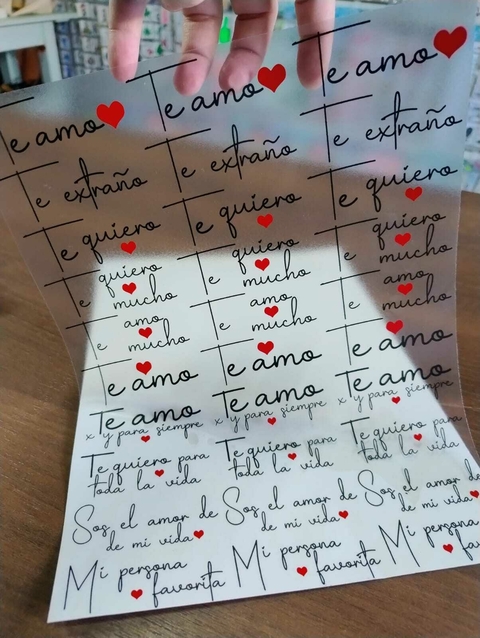 Te amo Te amo Te amo
Te extraño Te extraño Te extraño
Te quiero Te quiero Te quiero
Te quiero Te quiero Te quiero
mucho mucho mucho
Te amo Te amo Te amo
mucho mucho mucho
Te amo Te amo Te amo
Te amo Te amo Te amo
x y para siempre x y para siempre x y para siempre
Te quiero para Te quiero para Te quiero para
toda la vida toda la vida toda la vida
Sos el amor de Sos el amor de Sos el amor de
de mi vida de mi vida de mi vida
Mi persona Mi persona Mi persona
favorita favorita